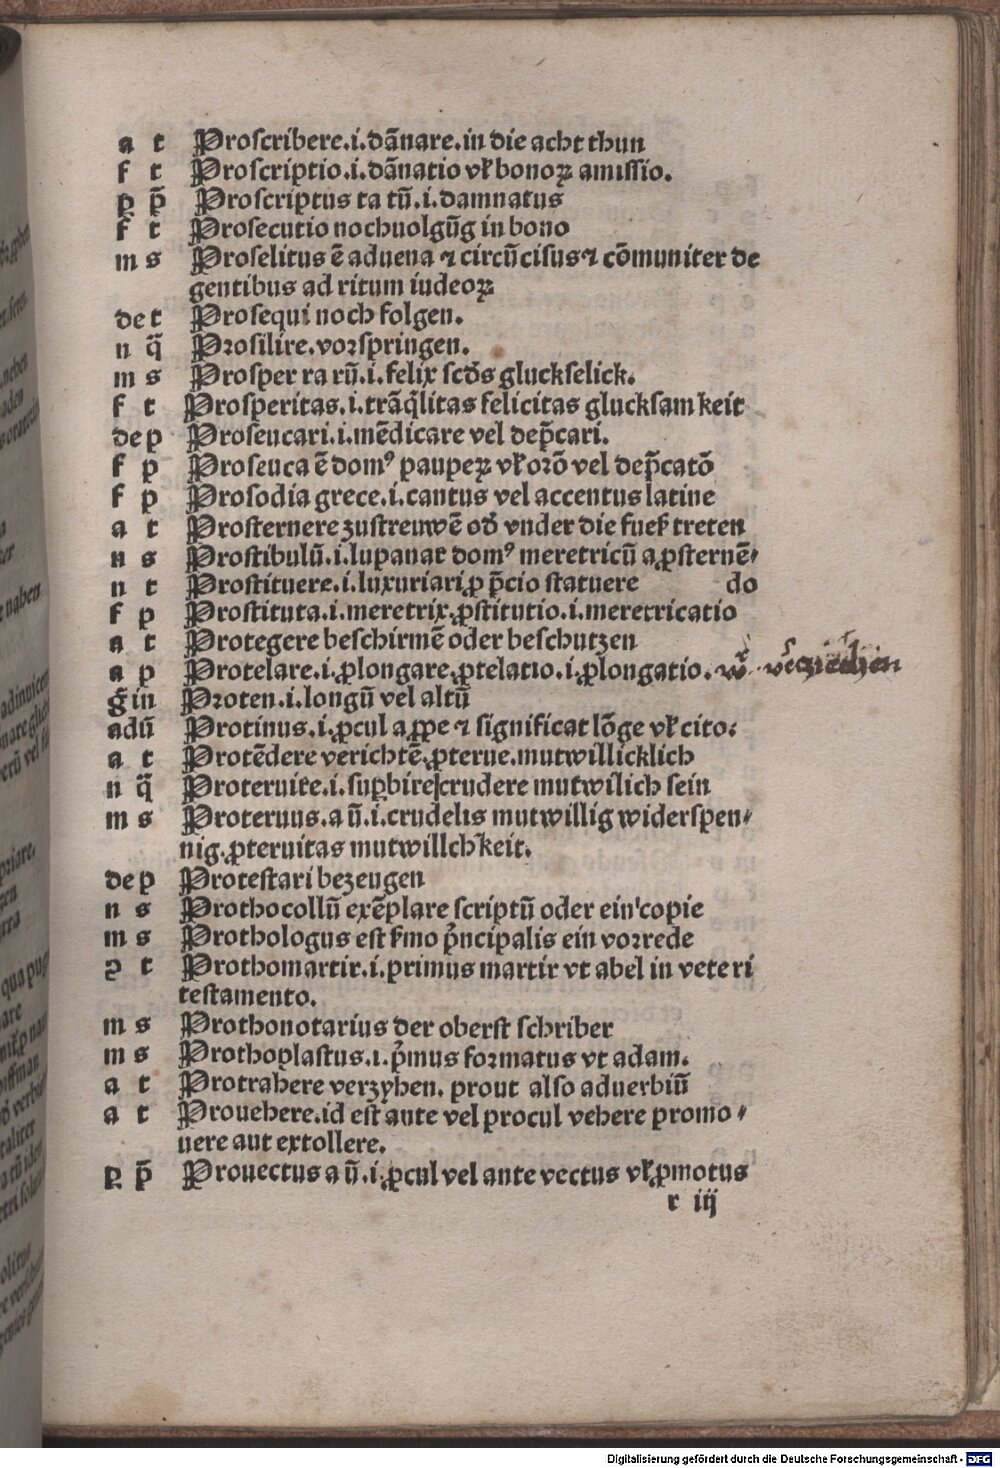 a t Proscribere.i.dãnare.in die acht thun
f t Proscriptio.i.dãnatio vł bonoꝝ amissio.
p p̃ Proscriptus ta tũ.i.damnatus
f t Prosecutio nochuolgũg in bono
m s Proselitus ẽ aduena ⁊ circũcisus ⁊ cõmuniter de
gentibus ad ritum iudeoꝝ
de t Prosequi noch folgen.
n q̃ Prosilire.vorspringen.
m s Prosper ra rũ.i.felix scðs gluckselick.
f t Prosperitas.i.trãq̃litas felicitas glucksamkeit
de p Proseucari.i.mẽdicare vel dep̃cari.
f p Proseuca ẽ domꝰ pauperꝝ vł orõ vel dep̃catõ
f p Prosodia grece.i.cantus vel accentus latine
a t Prosternere zustreuwẽ oð vnder die fueß treten
n s Prostibulũ.i.lupanar domꝰ meretricũ a ꝓsternẽ⸗
n t Prostituere.i.luxuriari ꝓ p̃cio statuere do
f p Prostituta.i.meretrix.ꝓstitutio.i.meretricatio
a t Protegere beschirmẽ oder beschutzen
a p Protelare.i.ꝓlongare.ꝓtelatio.i.ꝓlongatio.
g̃ in Proten.i.longũ vel altũ
adũ Protinus.i.ꝓcul a ꝓpe ⁊ significat lõge vł cito.
a t Protẽdere verichtẽ.ꝓterue.mutwillicklich
n q̃ Proteruire.i.suꝑbire|crudere mutwilich sein
m s Proteruus.a ũ.i.crudelis mutwillig widerspen⸗
nig.ꝓteruitas mutwillchkeit.
de p Protestari bezeugen
n s Prothocollũ exẽplare scriptũ oder ein copie
m s Prothologus est ẜmo p̃ncipalis ein vorrede
ꝯ t Prothomartir.i.primus martir vt abel in veteri
testamento.
m s Prothonotarius der oberst schriber
m s Prothoplastus.i.p̃mus formatus vt adam.
a t Protrahere verzyhen. prout also aduerbiũ
a t Prouehere.id est ante vel procul vehere promo⸗
uere aut extollere.
p p̃ Prouectus a ũ.i.ꝓcul vel ante vectus vł ꝓmotus
r iij
Digitalisierung gefördert durch die Deutsche Forschungsgemeinschaft - DFG